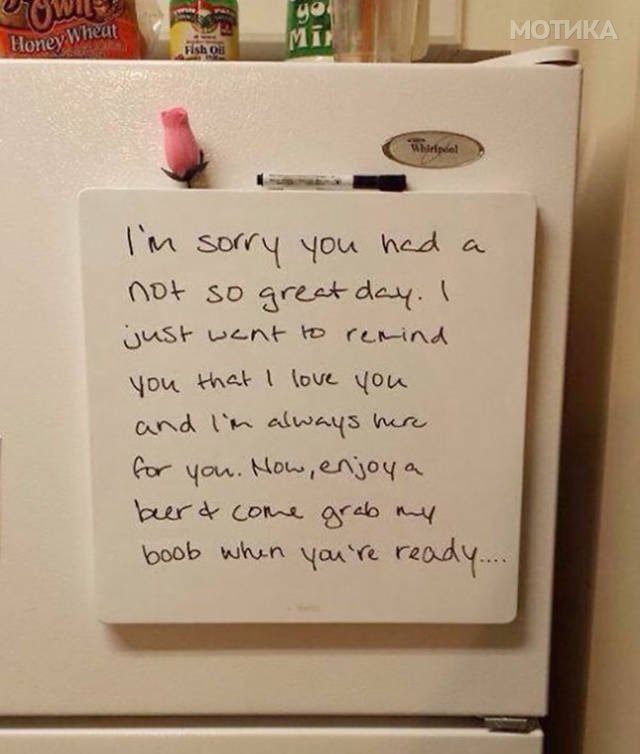 Own
Honey Wheat
Fish Oil
Mi
МОТИКА
Whirlpool
I'm sorry you had a
not so great day. I
just want to remind
you that I love you
and I'm always here
for you. Now, enjoy a
beer & come grab my
boob when you're ready....